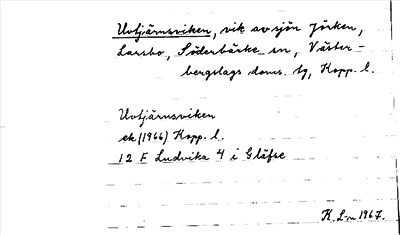 Uvtjärnsviken, vik av sjön Jörken,
Larsbo, Söderbärke sn, Väster-
bergslags doms. tg, Kopp. l.
Uvtjärnsviken
ek (1966) Kopp. l.
12 F Ludvika 4 i Gläfse
K. L-m 1967.